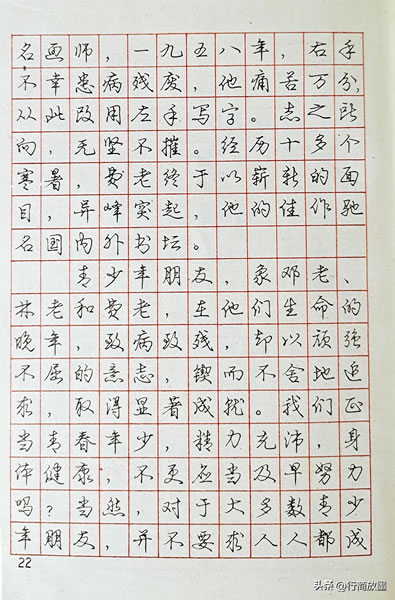 名画师，一九五八年，右手
不幸患病残废，他痛苦万分，
从此改用左手写字。志之所
向，无坚不摧。经历十多个
寒暑，费老终于以崭新的面
目，异峰突起，他的佳作驰
名国内外书坛。
青少年朋友，象邓老、
林老和费老，在他们生命的
晚年，致病致残，却以顽强
不屈的意志，锲而不舍地追
求，取得显著成就。我们正
当青春年少，精力充沛，身
体健康，不更应当及早努力
吗？当然，对于大多数青少
年朋友，并不要求人人都成
22
头条 @行简放